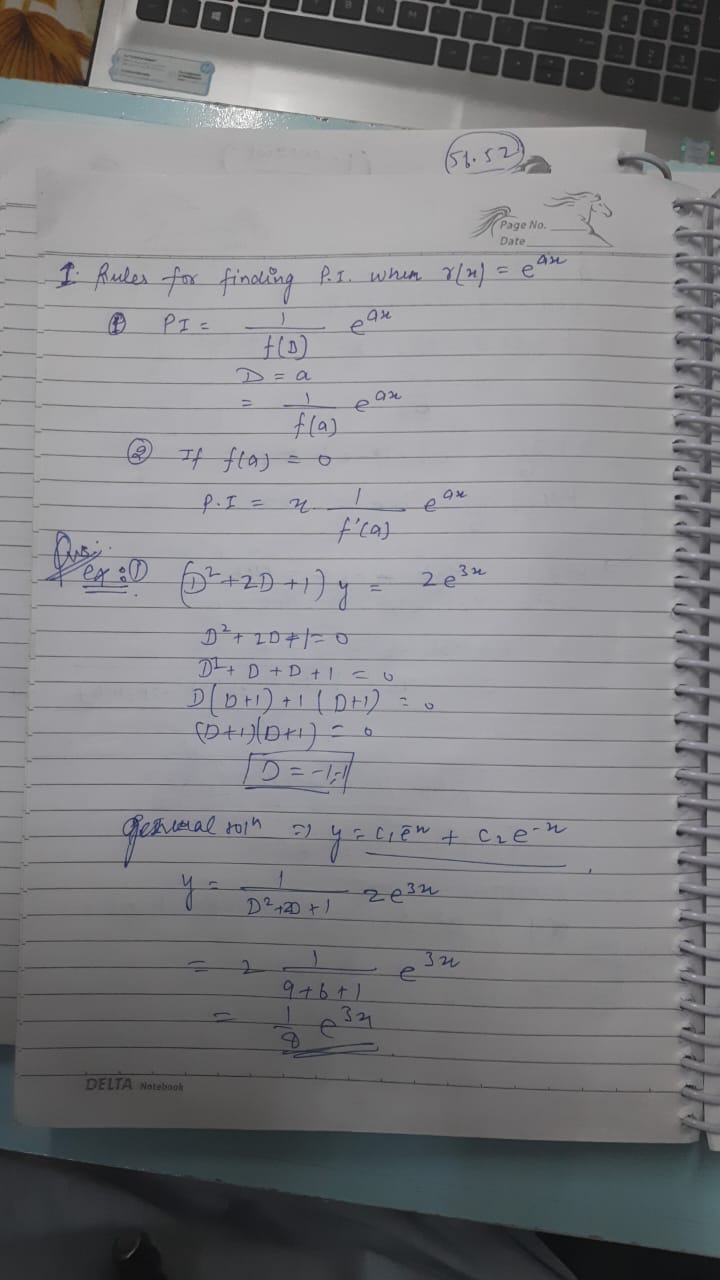 (51.52)
Page No.
Date
I. Rules for finding P.I. when r(x) = e^ax
① PI = 1/f(D) e^ax
D = a
= 1/f(a) e^ax
② If f(a) = 0
P.I = x 1/f'(a) e^ax
Ques:
ex:① (D²+2D+1) y = 2e^3x
D²+2D+1=0
D²+D+D+1=0
D(D+1)+1(D+1)=0
(D+1)(D+1)=0
D=-1,-1
General solⁿ => y = c₁e^-x + c₂e^-x
y = 1/(D²+2D+1) 2e^3x
= 2 1/(9+6+1) e^3x
= 1/8 e^3x
DELTA Notebook